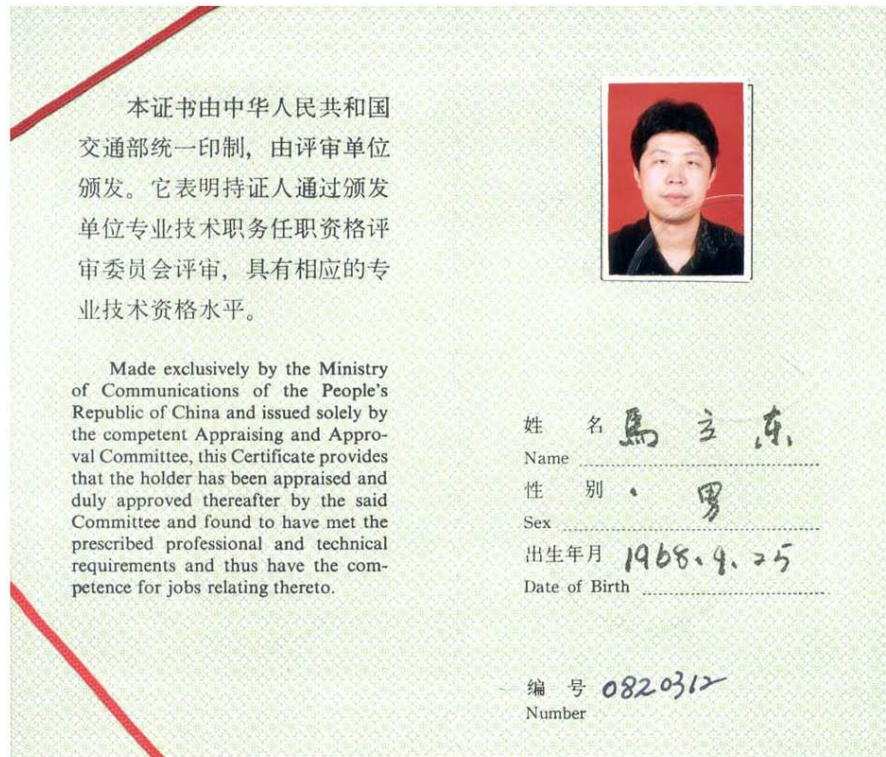 本证书由中华人民共和国
交通部统一印制，由评审单位
颁发。它表明持证人通过颁发
单位专业技术职务任职资格评
审委员会评审，具有相应的专
业技术资格水平。
Made exclusively by the Ministry
of Communications of the People's
Republic of China and issued solely by
the competent Appraising and Appro-
val Committee, this Certificate provides
that the holder has been appraised and
duly approved thereafter by the said
Committee and found to have met the
prescribed professional and technical
requirements and thus have the com-
petence for jobs relating thereto.
姓 名 馬立东
Name
性 别 男
Sex
出生年月 1968.9.25
Date of Birth
编 号 0820312
Number